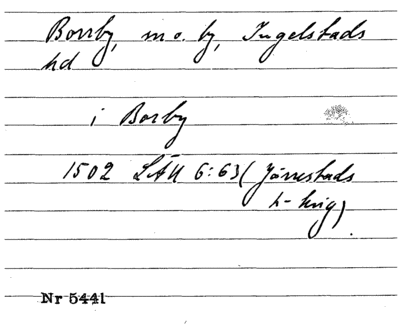 Borrby, sn o. by, Ingelstads
hd
i Borby
1502 LÄU 6:63 (Järrestads
h-krig).
Nr 5441